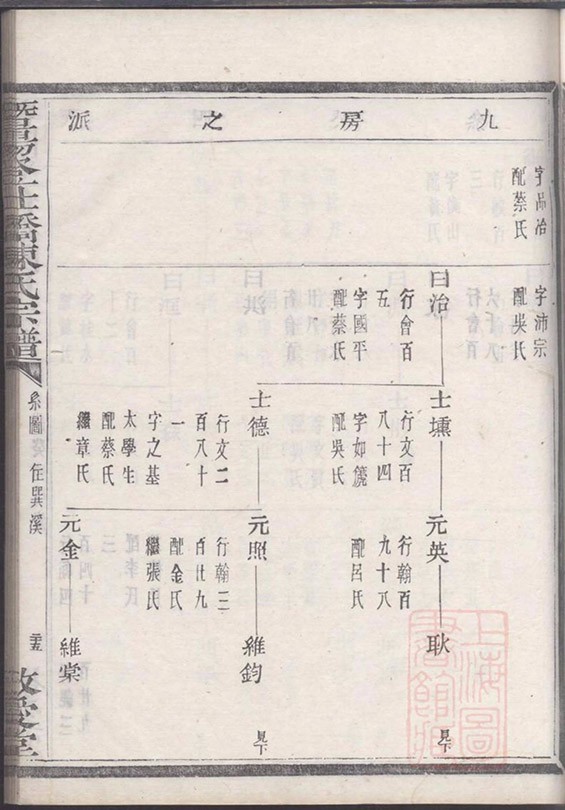 九房之派
字品冶
配蔡氏
字沛宗
配吳氏
曰治
行會百
五
字國平
配蔡氏
士壎
行文百
八十四
字如篪
配吳氏
元英
行翰百
九十八
配呂氏
耿
見下
士德
行文二
百八十
一
字之基
太學生
配蔡氏
繼章氏
元照
行翰三
百廿九
配金氏
繼張氏
維鈞
見下
元金
維棠
陳氏宗譜
系圖
在巽溪
上海圖書館藏